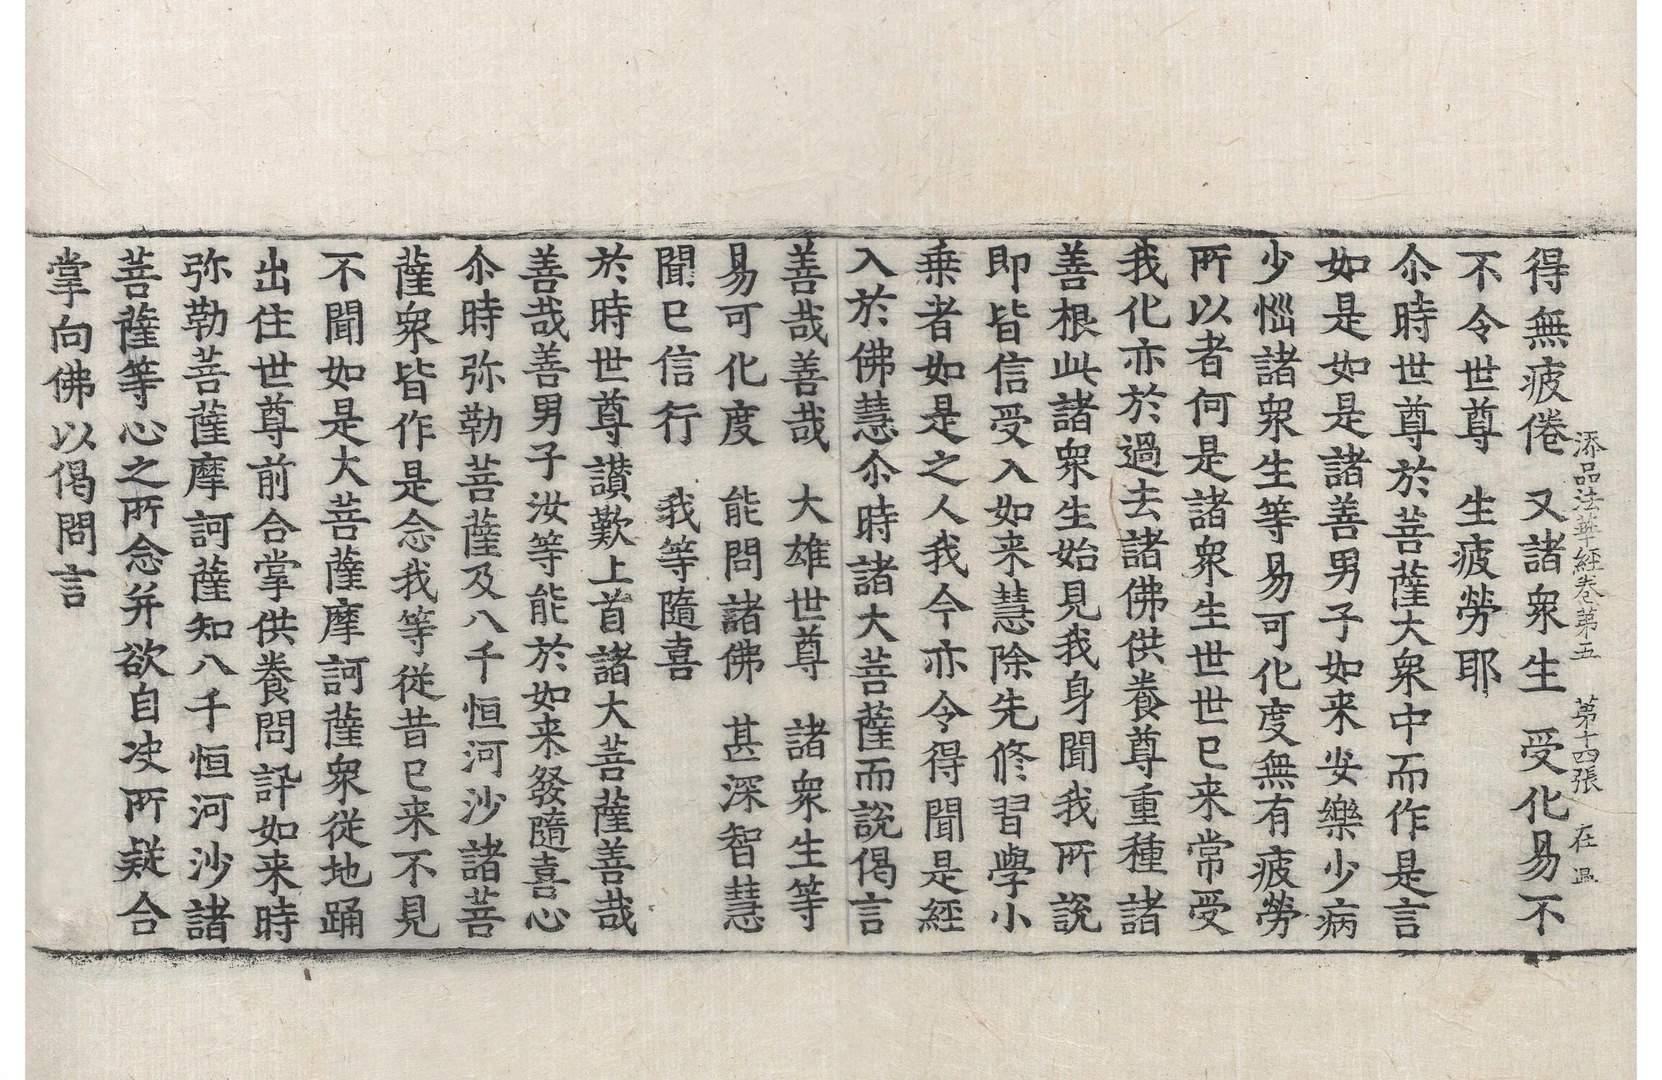 添品法華經卷第五　第十四張　在
得無疲倦　又諸衆生　受化易不
不令世尊　生疲勞耶
尒時世尊於菩薩大衆中而作是言
如是如是諸善男子如来安樂少病
少惱諸衆生等易可化度無有疲勞
所以者何是諸衆生世世已来常受
我化亦於過去諸佛供養尊重種諸
善根此諸衆生始見我身聞我所說
即皆信受入如来慧除先修習學小
乗者如是之人我今亦令得聞是經
入於佛慧尒時諸大菩薩而說偈言
善哉善哉　大雄世尊　諸衆生等
易可化度　能問諸佛　甚深智慧
聞已信行　我等隨喜
於時世尊讃歎上首諸大菩薩善哉
善哉善男子汝等能於如来發隨喜心
尒時弥勒菩薩及八千恒河沙諸菩
薩衆皆作是念我等従昔已来不見
不聞如是大菩薩摩訶薩衆従地踊
出住世尊前合掌供養問訊如来時
弥勒菩薩摩訶薩知八千恒河沙諸
菩薩等心之所念并欲自决所疑合
掌向佛以偈問言